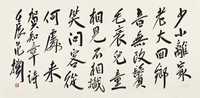 少小離家
老大回鄉
音無改鬢
毛衰兒童
相見不相識
笑問客從
何處來
賀知章詩